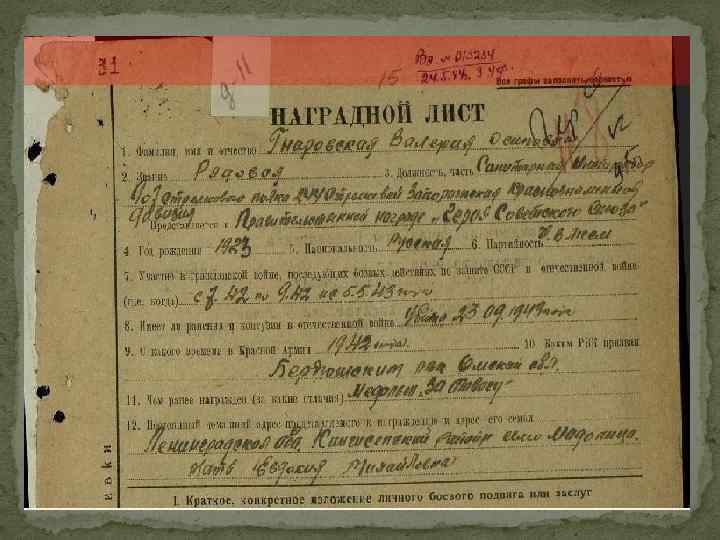 31
15
24.5.44. 3 Уф.
Все графы заполнять полностью
НАГРАДНОЙ ЛИСТ
1. Фамилия, имя и отчество Гнаровская Валерия Осиповна
2. Звание Рядовая 3. Должность, часть Санитарный инструктор
907 стрелкового полка 244 стрелковой Запорожская Краснознаменной
дивизии
Представляется к Правительственной награде „Герой Советского Союза"
4. Год рождения 1923 5. Национальность Русская 6. Партийность
7. Участие в гражданской войне, последующих боевых действиях по защите СССР и отечественной войне
(где, когда) с 7.42 по 9.42 и с 5.5.43
8. Имеет ли ранения и контузии в отечественной войне Убита 23.09.1943
9. С какого времени в Красной Армии 1942 10. Каким РВК призван
Бердюшским рвк Омской обл.
11. Чем ранее награжден (за какие отличия) Медалью „За отвагу"
12. Постоянный домашний адрес представляемого к награждению и адрес его семьи
Ленинградская обл. Кингисепский район село
Мать Евдокия Михайловна
I. Краткое, конкретное изложение личного боевого подвига или заслуг